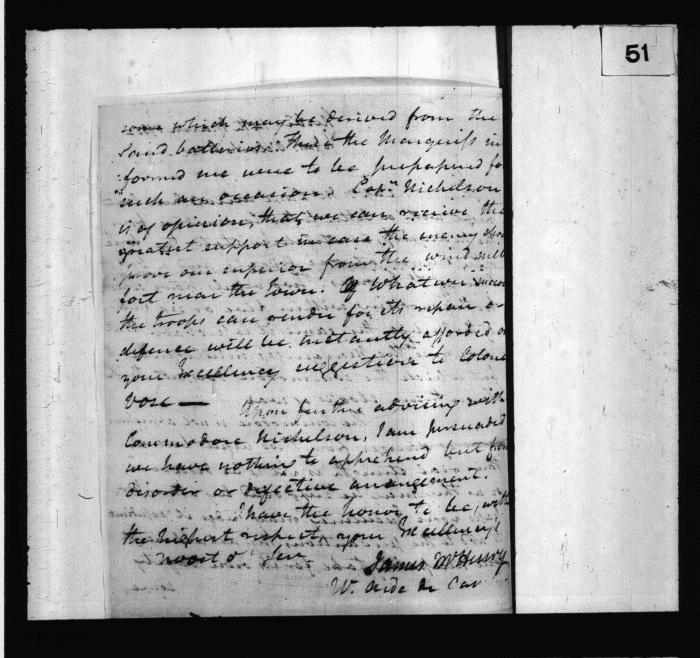 51
some which may be derived from the
land batteries. That the Marquiss in
formed me were to be prepared fo
such an occasion. Capn. Nichelson
is of opinion, that we can receive the
greatest support in case the enemy shou
prove our superior from the wind mill
fort near the town. Whatever succou
the troops can render for its repair or
defence will be instantly afforded o
your Excellency suggestion to Colone
Vose — Upon further advising with
Commodore Nichelson, I am persuaded
we have nothing to apprehend but from
disorder or defective arrangement.
I have the honor to be, with
the highest respect, your Excellency's
most o Ser
James McHenry
Aide de Cam